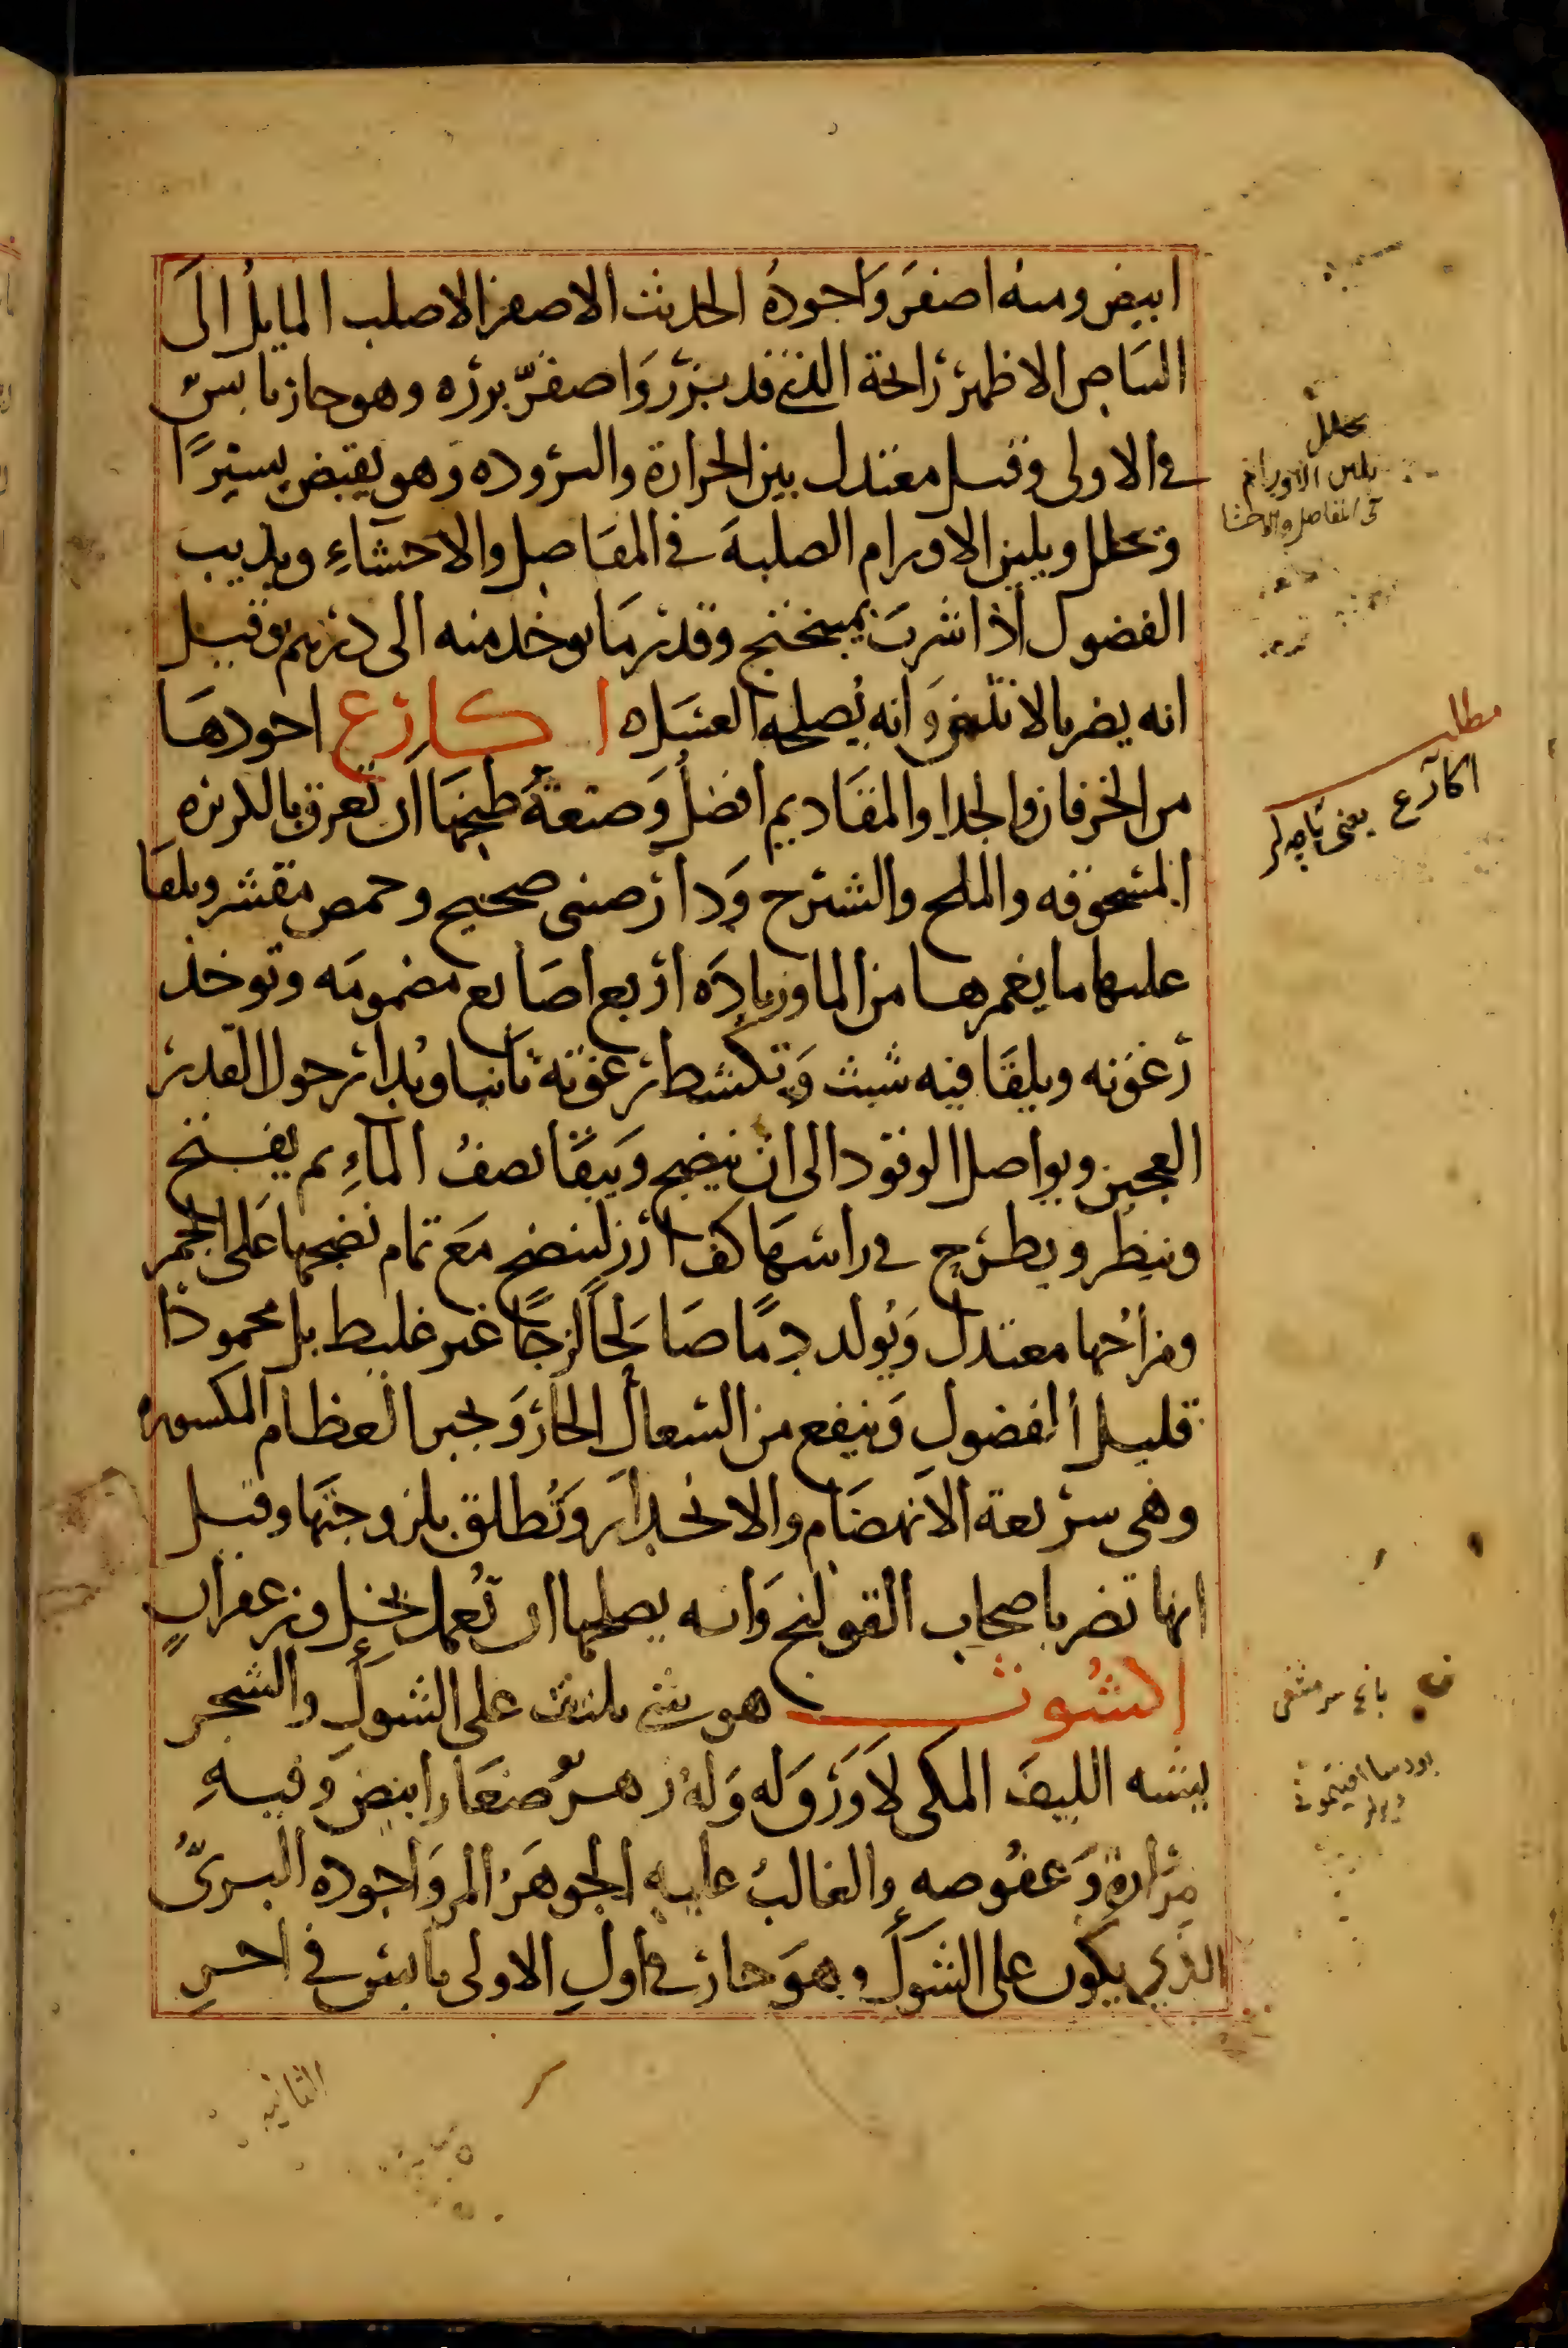 ابيض ومنه اصفر واجوده الحديث الاصفر الاصلب المايل الى
البياض الاظهر رايحة الذي قد بزر واصفر بزره وهو حار يابس
في الاولى وقيل معتدل بين الحرارة والبروده وهو يقبض يسيرًا
ويحلل ويلين الاورام الصلبة في المفاصل والاحشاءِ ويذيب
الفضول اذا شرب بميبختج وقدر ما يوخذ منه الى درهم وقيل
انه يضر بالانثيين وانه يُصلحه العسل ه اكارع اجودها
من الخرفان والجدا والمقاديم افضلُ وصنعةُ طبخها ان تعرق بالكزبره
المسحوقه والملح والشيرج ودارصيني صحيح وحمص مقشر ويلقا
عليها ما يغمرها من الما وزيادة اربع اصابع مضمومه وتوخذ
رغوته ويلقا فيه شبث وتكشط رغوته ثانيا ويدار حول القدر
العجين ويواصل الوقود الى ان ينضج ويبقا نصفُ الماءِ ثم يفتح
وينظر ويطرح في راسها كف ارز لينضج مع تمام نضجها على الجمر
ومزاجها معتدل ويُولد دمًا صالحًا لزجًا غير غليظ بل محمودًا
قليل الفضولِ وينفع من السعال الحار ويجبر العظام المكسوره
وهي سريعة الانهضام والانحدار وتُطلق بلزوجتها وقيل
انها تضر باصحاب القولنج وانه يصلحها ان تُعمل بخل وزعفرانٍ
اكشوث هو شي يلتف على الشوك والشجر
يشبه الليف المكي لا ورق له وله زهر صغار ابيض وفيهِ
مرارة وعفوصه والغالبُ عليه الجوهر المر واجوده البرىُّ
الذي يكون على الشوك وهو حار في اولِ الاولى يابس في اخرِ
الثانيه
يحلل
يلين الاورام
في المفاصل والاحشا
مطلب
اكارع يعنى پاچه لر